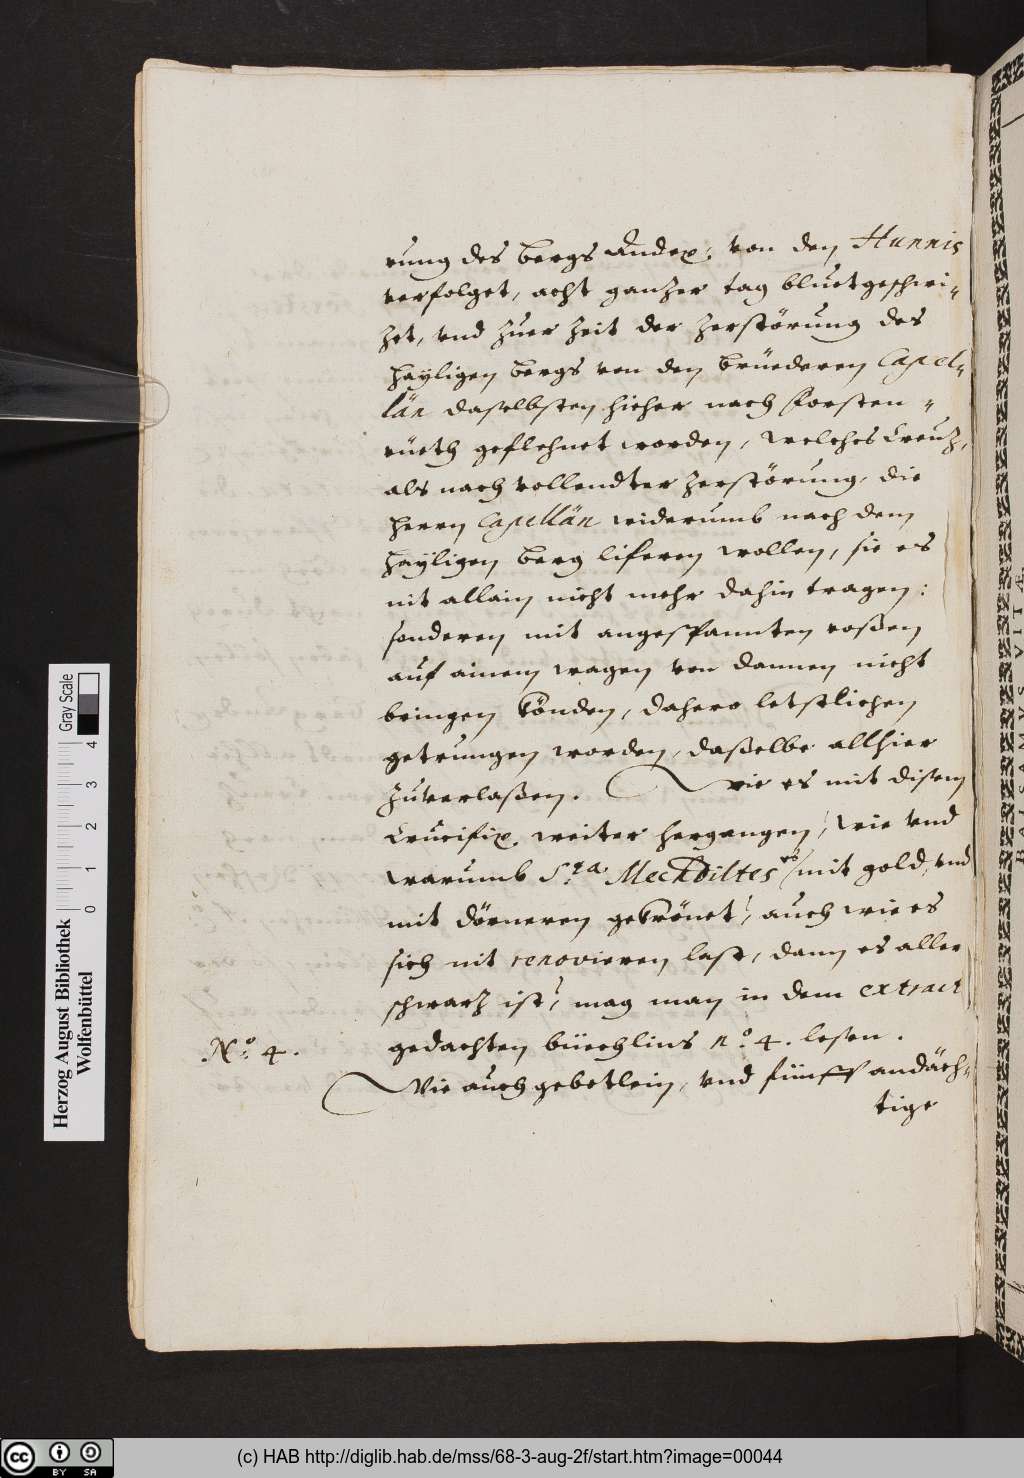 rung des bergs Andex: von den Hunnis
verfolget, acht ganzer tag bluet geschwi-
zet, vnd zuer zeit der zerstörung des
hayligen bergs von den brüederen Capel-
län daselbsten hieher nach Forsten-
rüeth geflehnet worden, welches Creuz,
als nach vollendter zerstörung, die
herrn Capellän widerumb nach dem
hayligen berg liferen wollen, sie es
nit allain nicht mehr dahin tragen:
sonderen mit angespannten roßen
auf ainem wagen von dannen nicht
bringen könden, dahero letstlichen
getrungen worden, daßelbe allhier
zuverlaßen. Wie es mit disem
Crucifix. weiter hergangen, wie vnd
warumb S:ta Mechdiltes es mit gold, vnd
mit dörneren gekrönet, auch wie es
sich nit renovieren last, dann es aller
schwarz ist, mag man in dem extract
gedachten büechlins n:o 4. lesen.
.N:o 4.
Wie auch gebetlein, vnd fünff andäch-
tige
Herzog August Bibliothek
Wolfenbüttel
0 1 2 3 4
Gray Scale
VITÆ
BALSAMVS
cc BY SA
(c) HAB http://diglib.hab.de/mss/68-3-aug-2f/start.htm?image=00044